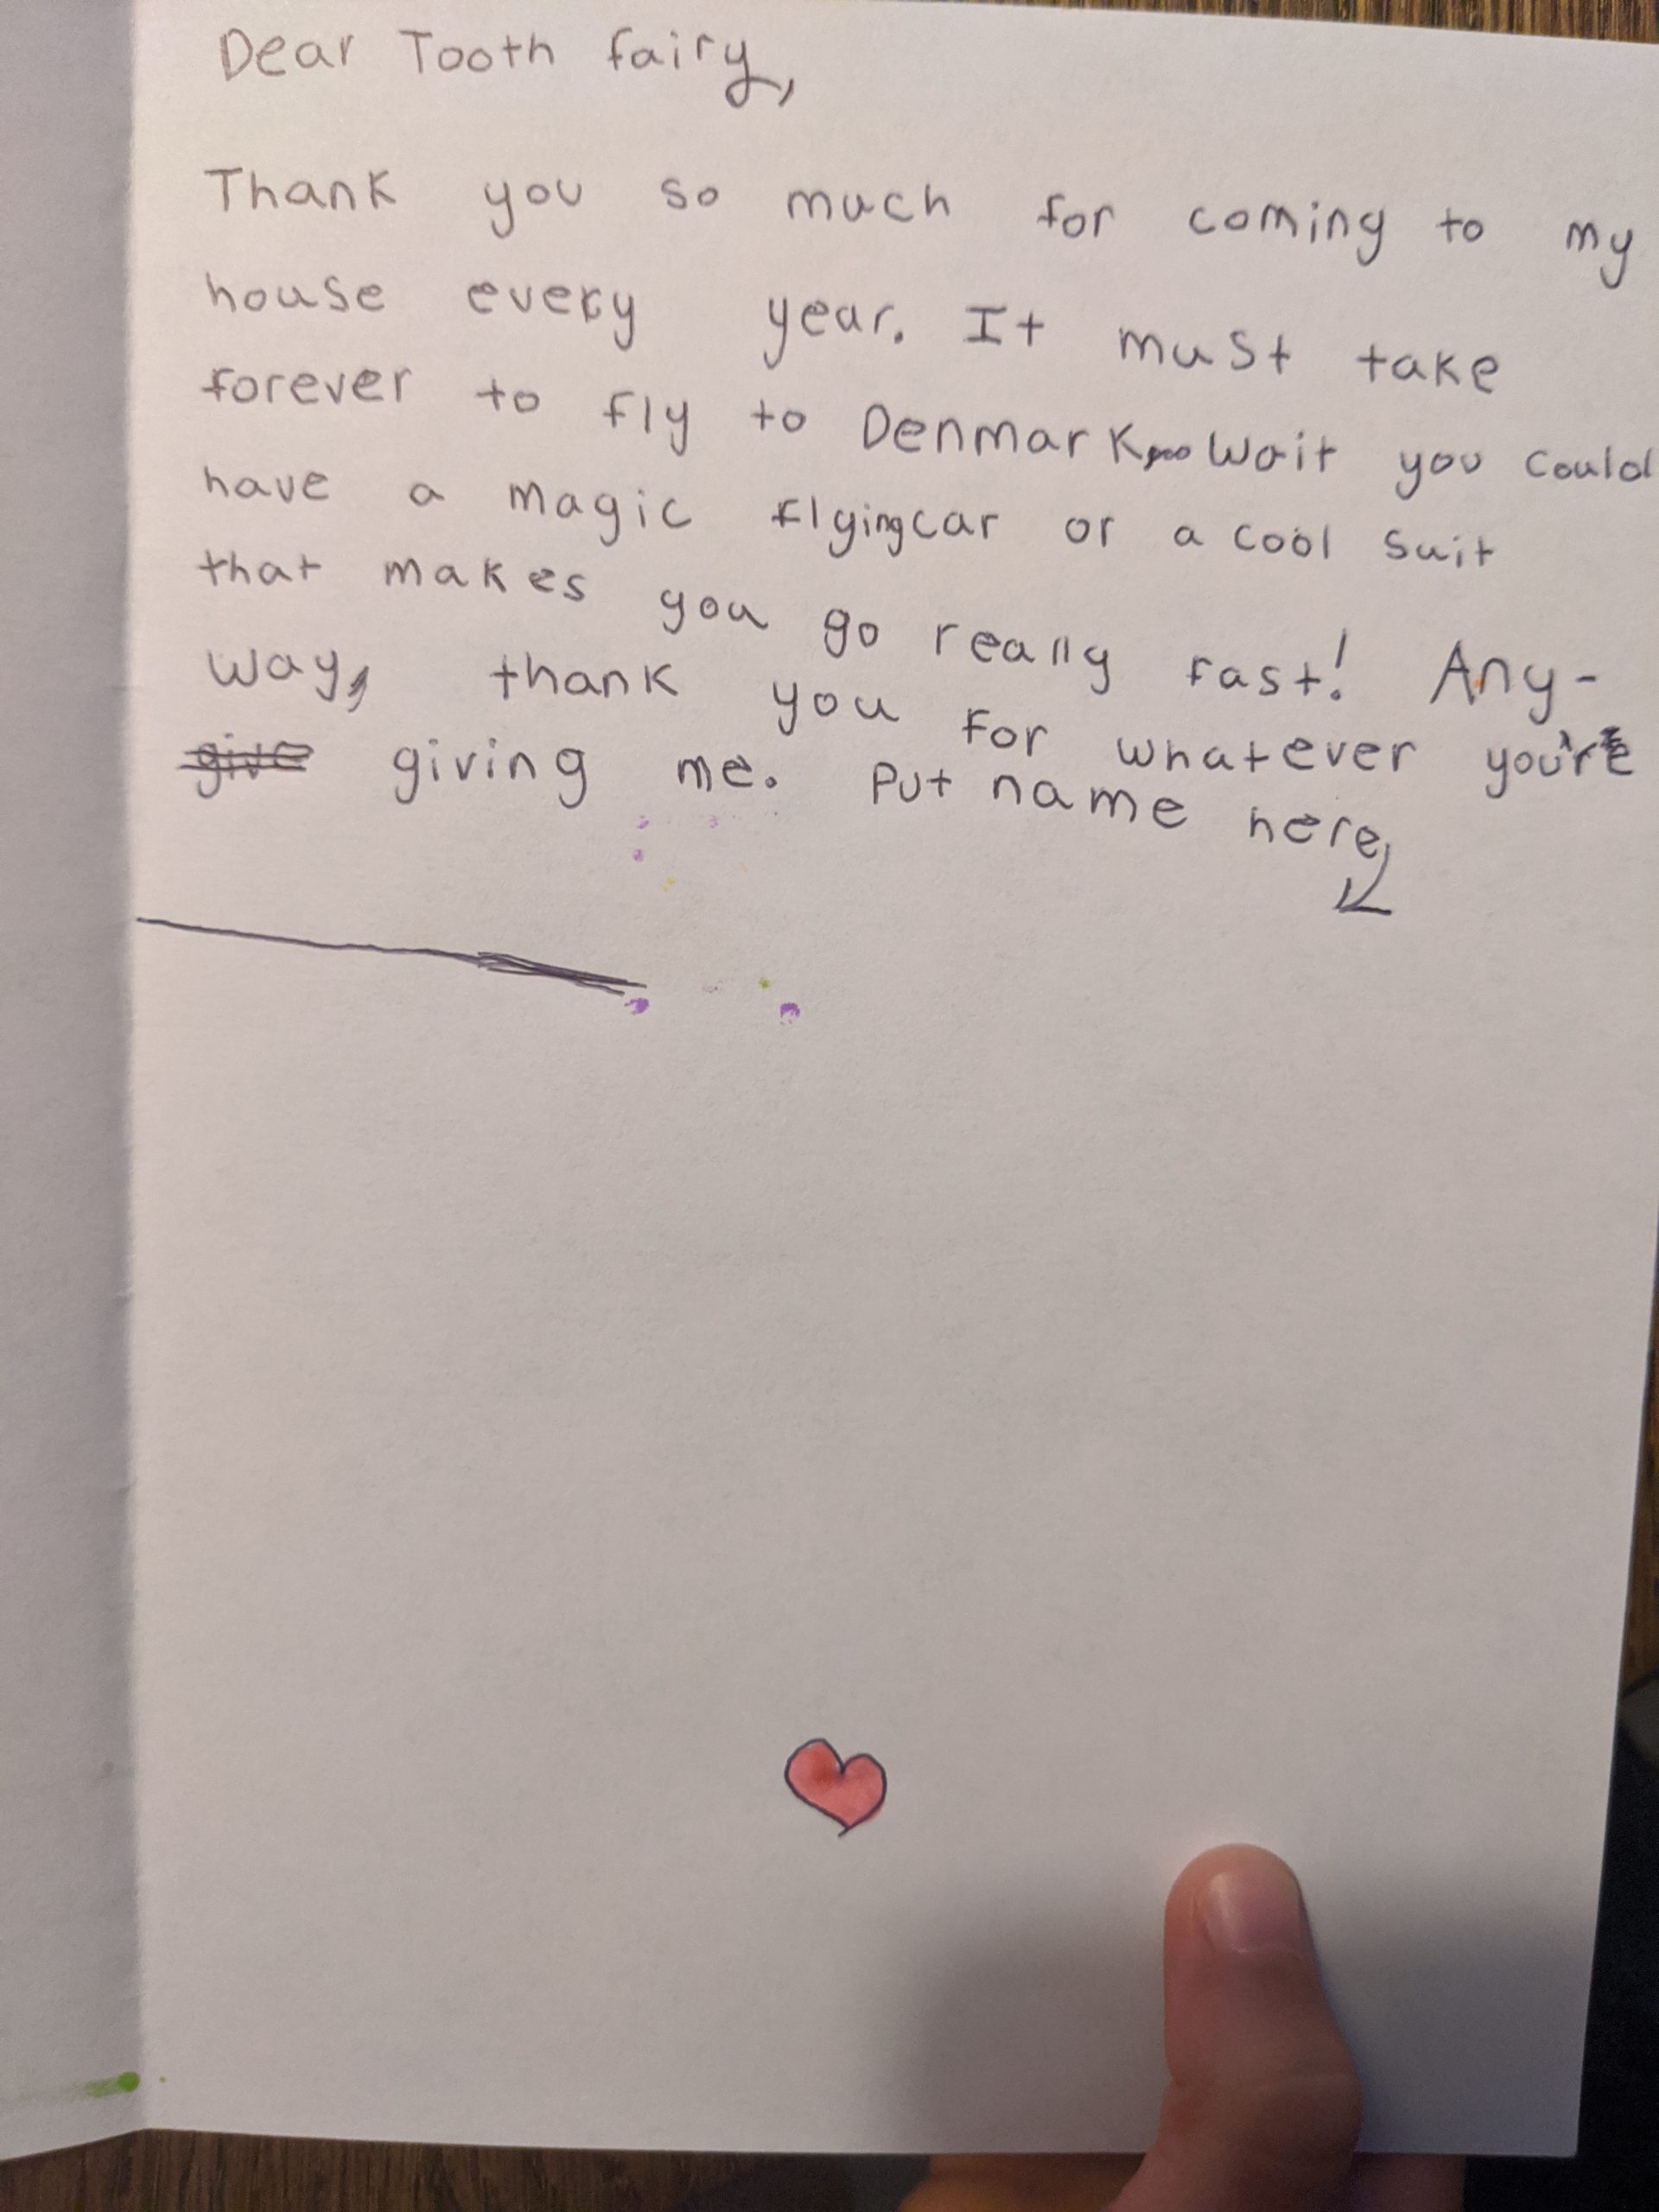 Dear Tooth fairy,
Thank you so much for coming to my
house every year. It must take
forever to fly to Denmark... Wait you could
have a magic flyingcar or a cool suit
that makes you go really fast! Any-
way, thank you for whatever you're
give giving me. Put name here